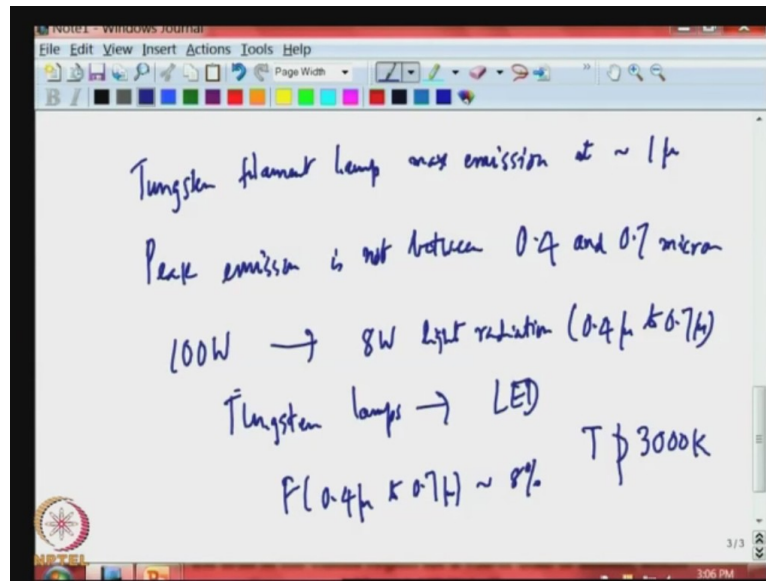 Note1 - Windows Journal
File Edit View Insert Actions Tools Help
Page Width
B I
Tungsten filament lamp max emission at ~ 1μ
Peak emission is not between 0.4 and 0.7 micron
100W → 8W light radiation (0.4μ to 0.7μ)
Tungsten lamps → LED
T ≯ 3000K
F(0.4μ to 0.7μ) ~ 8%
3/3
NPTEL
3:06 PM